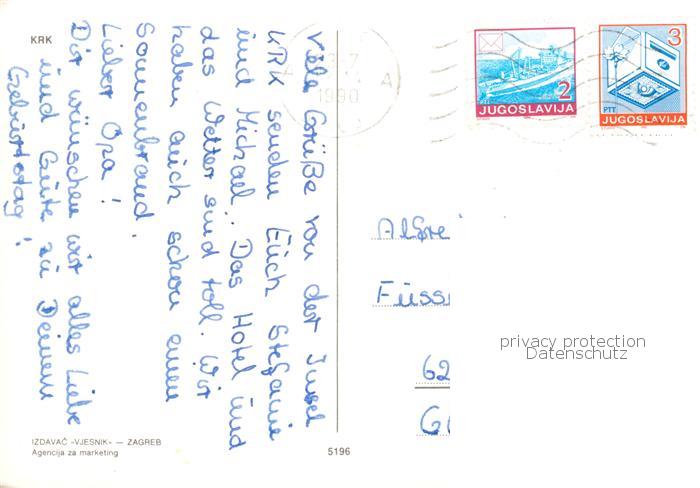 KRK
Viele Grüße von der Insel
KRK senden Euch Stefanie
und Michael. Das Hotel und
das Wetter sind toll. Wir
haben auch schon einen
Sonnenbrand.
Lieber Opa!
Dir wünschen wir alles Liebe
und Gute zu Deinem
Geburtstag!
IZDAVAČ »VJESNIK« — ZAGREB
Agencija za marketing
5196
1990
A
2
JUGOSLAVIJA
3
PTT
JUGOSLAVIJA
Alfre
Füss
62
privacy protection
Datenschutz